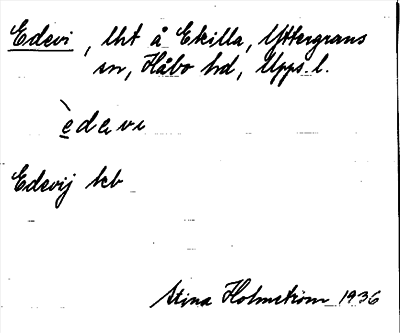 Edevi, lht å Ekilla, Yttergrans
sn, Håbo hd, Upps. l.
èdevi
Edevij kb
Stina Holmström 1936